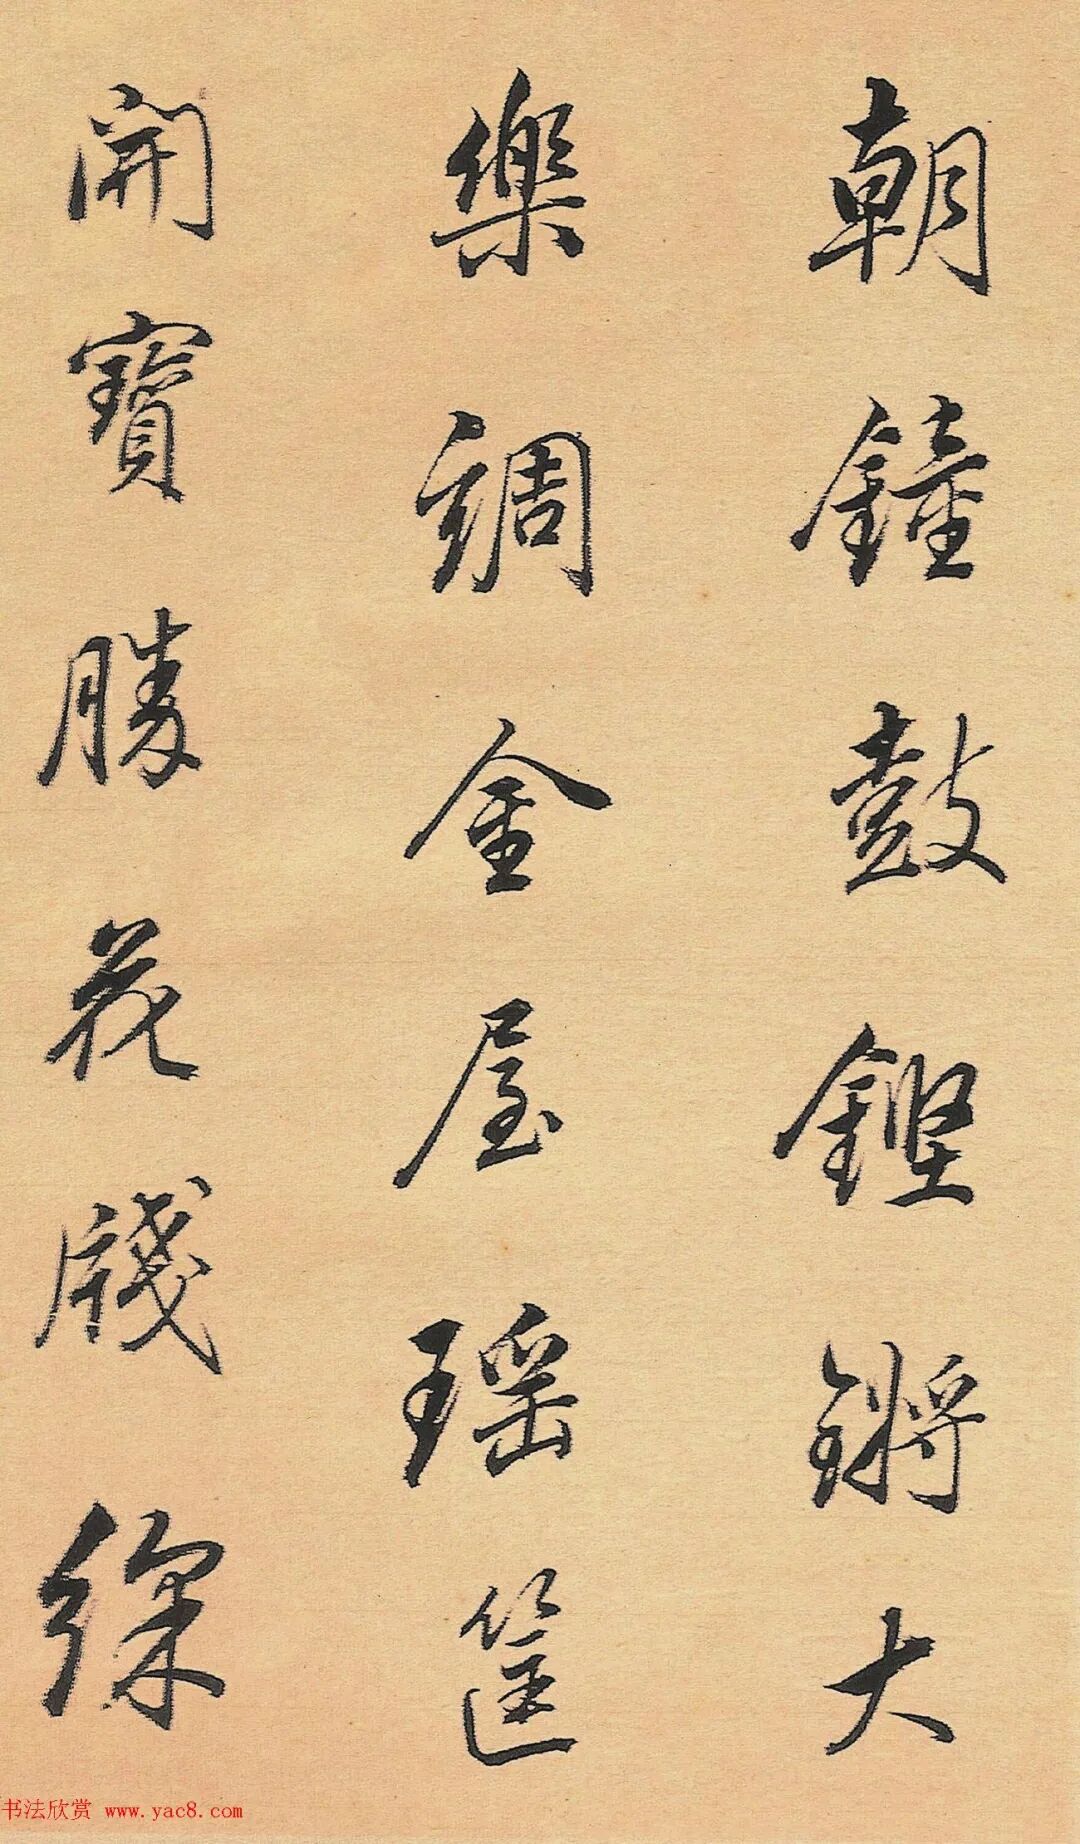 朝鐘鼓鏗鏘大
樂調金屋瑶筐
開寶勝花牋綵
书法欣赏 www.yac8.com